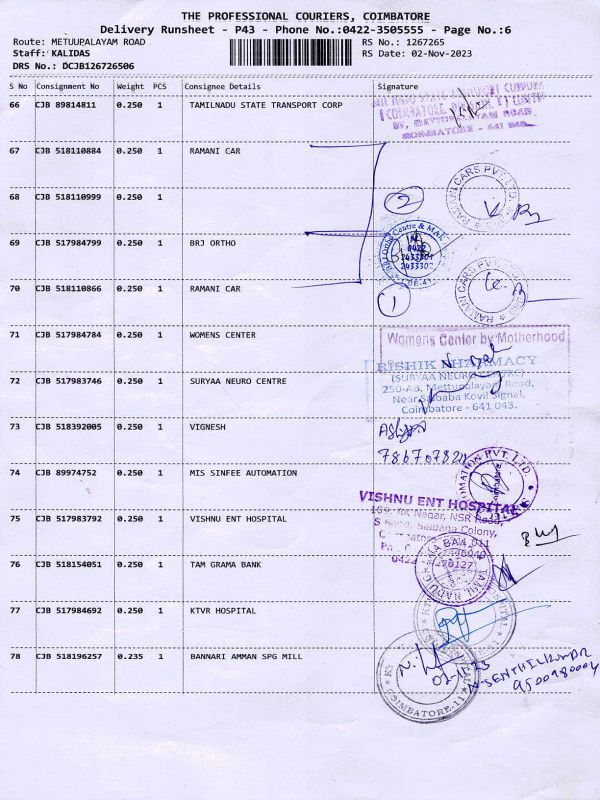 THE PROFESSIONAL COURIERS, COIMBATORE
Delivery Runsheet - P43 - Phone No.:0422-3505555 - Page No.:6
Route: METUUPALAYAM ROAD RS No.: 1267265
Staff: KALIDAS RS Date: 02-Nov-2023
DRS No.: DCJB126726506
S No Consignment No Weight PCS Consignee Details Signature
66 CJB 89814811 0.250 1 TAMILNADU STATE TRANSPORT CORP
COIMBATORE - 641
67 CJB 518110884 0.250 1 RAMANI CAR
68 CJB 518110999 0.250 1
2
RAMANI CARS PVT. LTD.
69 CJB 517984799 0.250 1 BRJ ORTHO
Ortho Centre & MAX
0422
70 CJB 518110866 0.250 1 RAMANI CAR
1
RAMANI CARS PVT. LTD.
71 CJB 517984784 0.250 1 WOMENS CENTER
Womens Center by Motherhood
72 CJB 517983746 0.250 1 SURYAA NEURO CENTRE
RISHIK PHARMACY
(SURYAA NEURO CENTRE)
250-AB, Mettupalayam Road,
Near Saibaba Kovil Signal,
Coimbatore - 641 043.
73 CJB 518392005 0.250 1 VIGNESH
74 CJB 89974752 0.250 1 MIS SINFEE AUTOMATION
75 CJB 517983792 0.250 1 VISHNU ENT HOSPITAL
VISHNU ENT HOSPITAL
Nagar, NSR Road,
Saibaba Colony,
76 CJB 518154051 0.250 1 TAM GRAMA BANK
77 CJB 517984692 0.250 1 KTVR HOSPITAL
78 CJB 518196257 0.235 1 BANNARI AMMAN SPG MILL
N. SENTHILKUMAR
9500980004
COIMBATORE-11